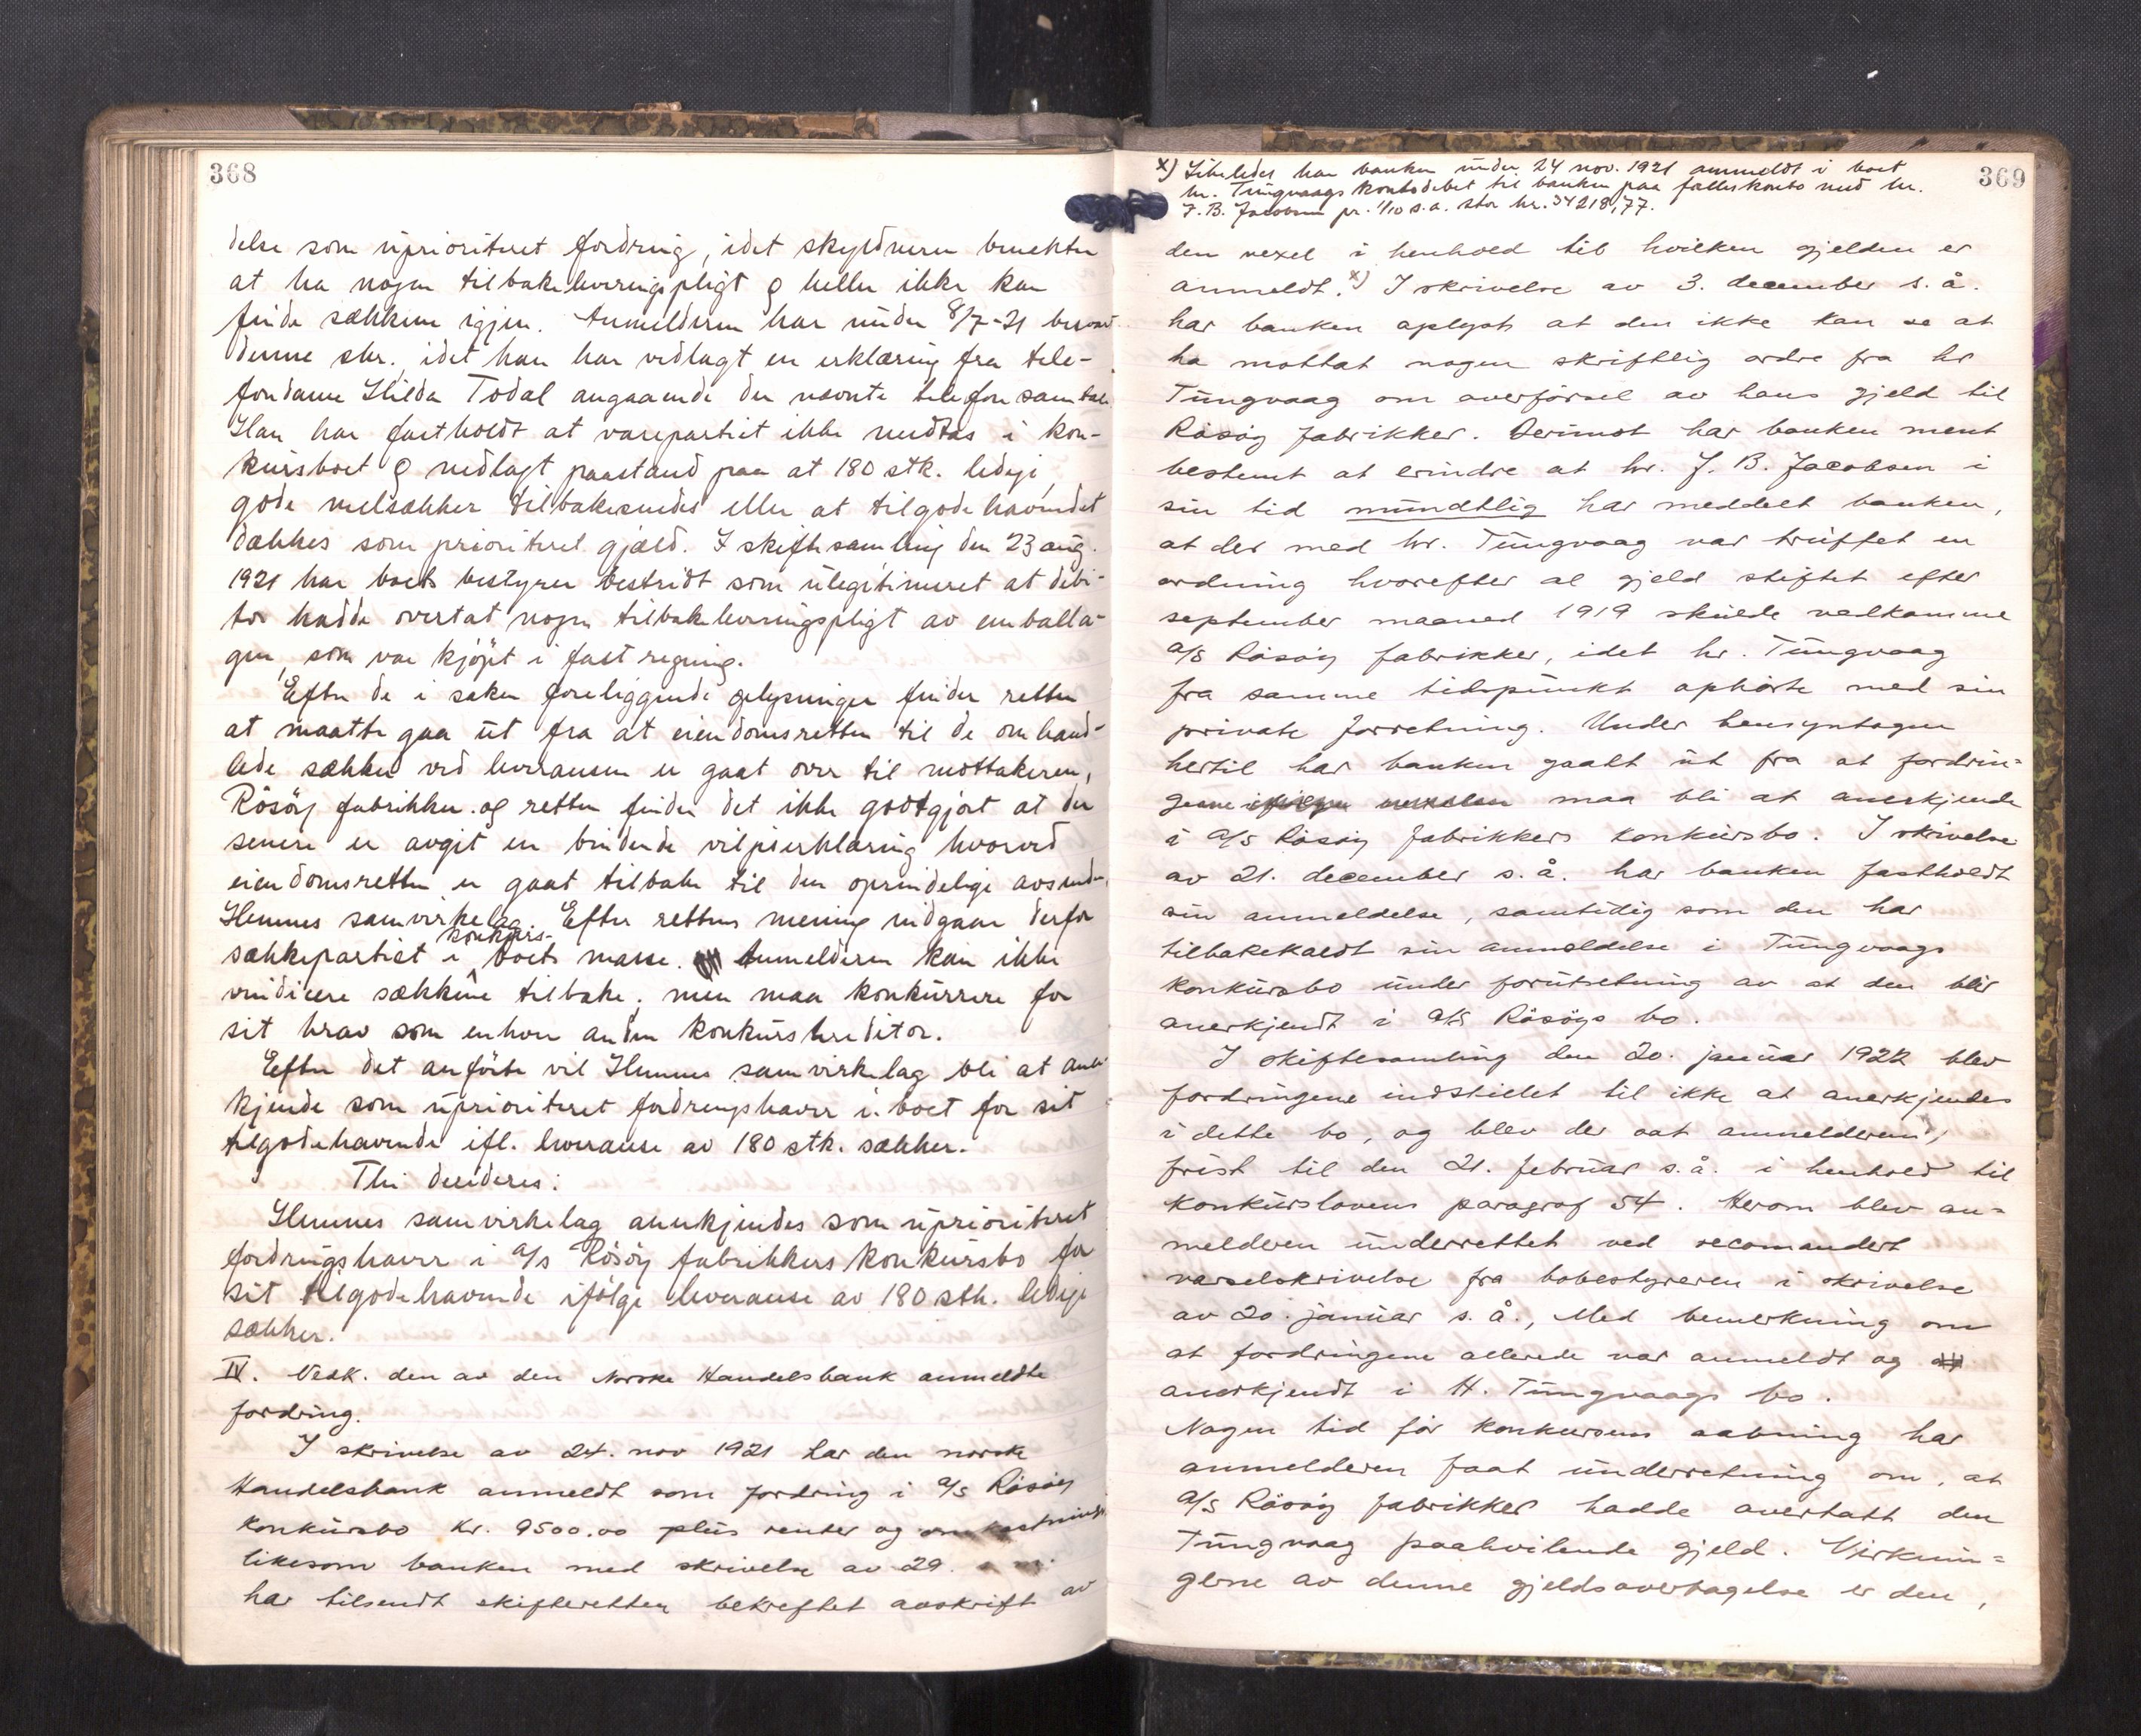 368
delse som uprioritert fordring, idet skyldneren benekter
at ha nogen tilbakeleveringspligt & heller ikke kan
finde sækkene igjen. Anmelderen har under 8/7-21 besvart
denne skr., idet han har vedlagt en erklæring fra tele-
fondame Hilda Todal angaaende den nævnte telefonsamtale.
Han har fastholdt at varepartiet ikke medtas i kon-
kursboet & nedlagt paastand paa at 180 stk. ledige,
gode melsækker tilbakesendes eller at tilgodehavendet
dækkes som prioriteret gjæld. I skiftesamling den 23 aug.
1921 har boets bestyrer bestridt som ulegitimeret at debi-
tor hadde overtat nogen tilbakeleveringspligt av emballa-
gen, som var kjöpt i fast regning.
Efter de i saken foreliggende oplysninger finder retten
at maatte gaa ut fra at eiendomsretten til de omhand-
lede sækker ved leveransen er gaat over til mottakeren,
Rösöy fabrikker. og retten finder det ikke godtgjort at der
senere er avgit en bindende viljeserklæring hvorved
eiendomsretten er gaat tilbake til den oprindelige avsender
Hemnes samvirkelag. Efter rettens mening indgaar derfor
sækkepartiet i konkurs-boets masse. Anmelderen kan ikke
vindicere sækkene tilbake, men maa konkurrere for
sit krav som enhver anden konkurskreditor.
Efter det anförte vil Hemnes samvirkelag bli at aner-
kjende som uprioriteret fordringshaver i boet for sit
tilgodehavende ifl. leveranse av 180 stk. sækker.
Thi decideres:
Hemnes samvirkelag anerkjendes som uprioriteret
fordringshaver i A/S Rösöy fabrikkers konkursbo for
sit tilgodehavende ifölge leveranse av 180 stk. ledige
sækker.
IV. Vedk. den av den Norske Handelsbank anmeldte
fordring.
I skrivelse av 24. nov 1921 har den norske
Handelsbank anmeldt som fordring i A/S Rösöy
konkursbo kr. 9500.00 plus renter og omkostninger
likesom banken med skrivelse av 29.
har tilsendt skifteretten bekreftet avskrift av
369
x) Likeledes har banken under 24 nov. 1921 anmeldt i boet
hr. Tungvaags kontodebet til banken paa felleskonto med hr.
J. B. Jacobsen pr. 1/10 s.a. stor kr. 34218,77.
den vexel i henhold til hvilken gjelden er
anmeldt. x) I skrivelse av 3. december s. å.
har banken oplyst at den ikke kan se at
ha mottat nogen skriftlig ordre fra hr
Tungvaag om overförsel av hans gjeld til
Rösöy fabrikker. Derimot har banken ment
bestemt at erindre at hr. J. B. Jacobsen i
sin tid mundtlig har meddelt banken,
at der med hr. Tungvaag var truffet en
ordning hvorefter al gjeld stiftet efter
september maaned 1919 skulde vedkomme
A/S Rösöy fabrikker, idet hr. Tungvaag
fra samme tidspunkt ophörte med sin
private forretning. Under hensyntagen
hertil har banken gaatt ut fra at fordrin-
gerne maa bli at anerkjende
i A/S Rösöy fabrikkers konkursbo. I skrivelse
av 21. december s. å. har banken fastholdt
sin anmeldelse, samtidig som den har
tilbakekaldt sin anmeldelse i Tungvaags
konkursbo under forutsetning av at den blir
anerkjendt i A/S Rösöys bo.
I skiftesamling den 20. januar 1922 blev
fordringene indstillet til ikke at anerkjendes
i dette bo, og blev der sat anmelderen
frist til den 21. februar s. å. i henhold til
konkurslovens paragraf 54. Herom blev an-
melderen underrettet ved recomandert
varselskrivelse fra bobestyreren i skrivelse
av 20. januar s. å., Med bemerkning om
at fordringene allerede var anmeldt og
anerkjendt i H. Tungvaags bo.
Nogen tid för konkursens aabning har
anmelderen faat underretning om, at
A/S Rösöy fabrikker hadde overtatt den
Tungvaag paahvilende gjeld. Virknin-
gerne av denne gjeldsovertagelse er den,